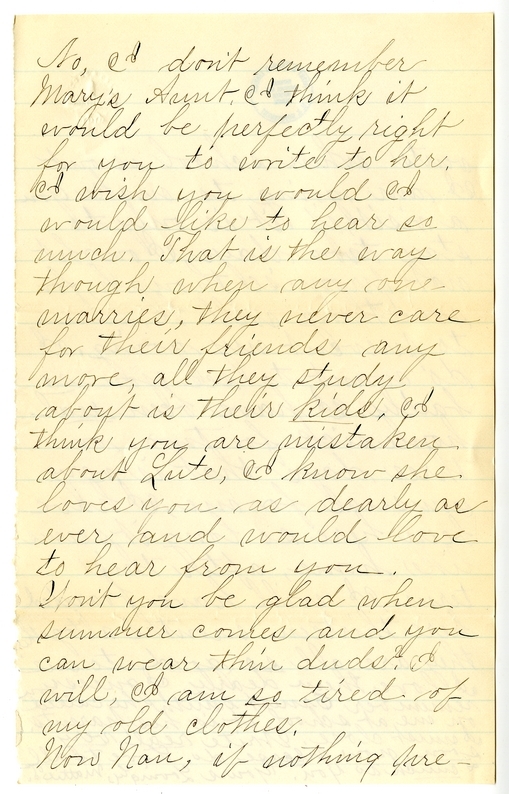 No, I don't remember
Mary's Aunt. I think it
would be perfectly right
for you to write to her.
I wish you would I
would like to hear so
much. That is the way
though when any one
marries, they never care
for their friends any
more, all they study
about is their kids, I
think you are mistaken
about Lute, I know she
loves you as dearly as
ever and would love
to hear from you.
Won't you be glad when
summer comes and you
can wear thin duds? I
will, I am so tired of
my old clothes.
Now Nan, if nothing pre-